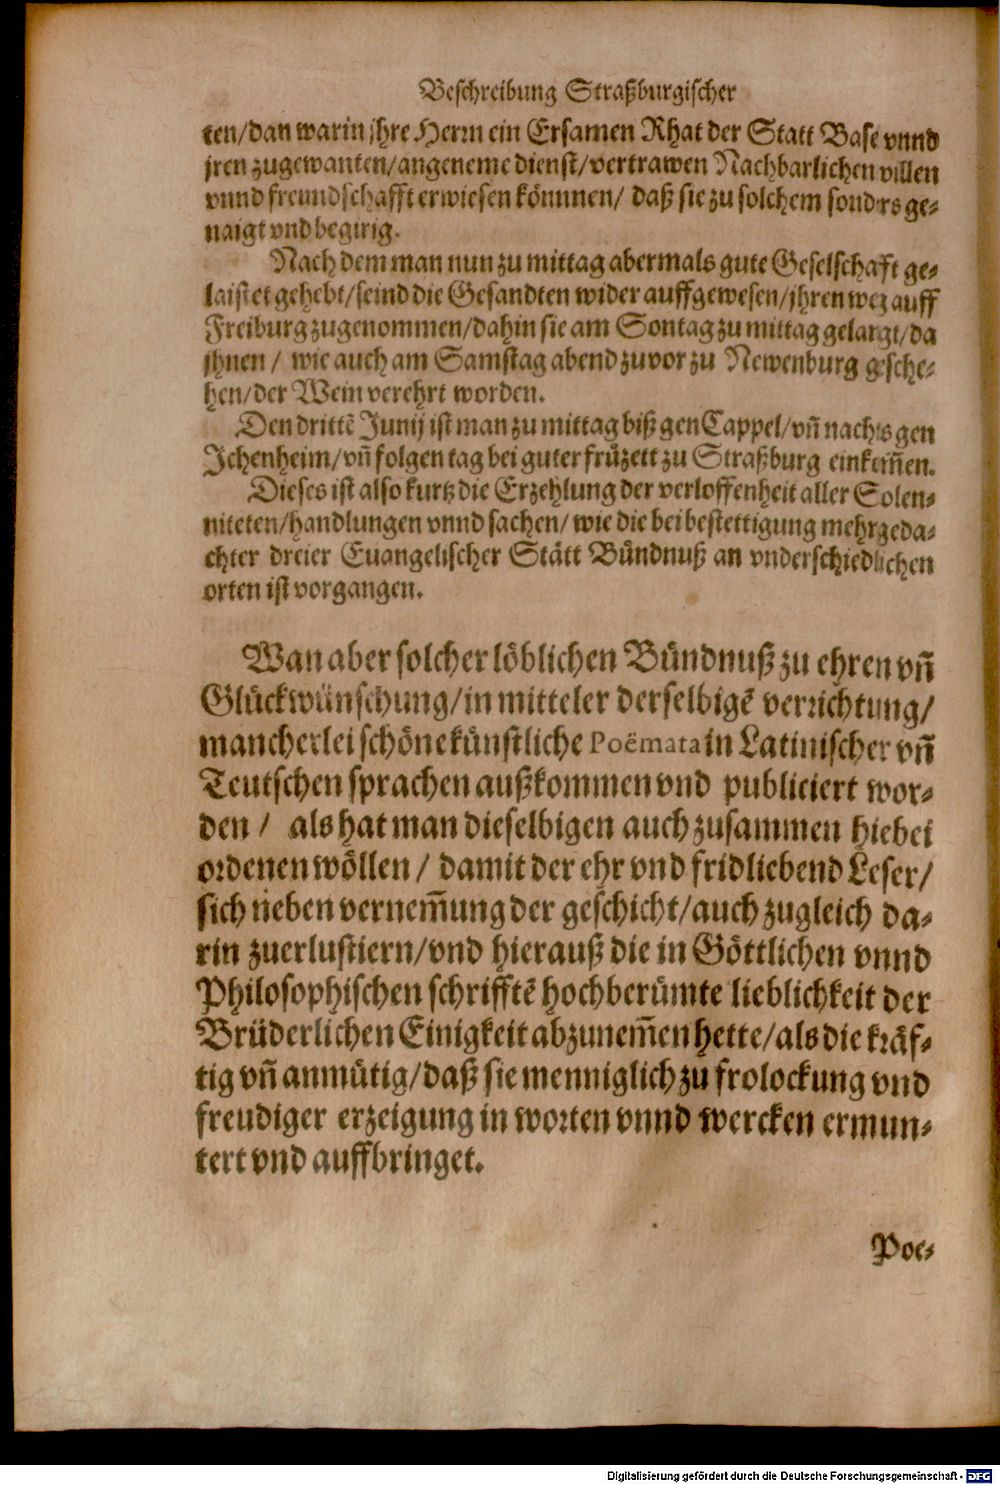 Beschreibung Straßburgischer
ten/dan warin jhre Herrn ein Ersamen Rhat der Statt Base vnnd
jren zugewanten/angeneme dienst/vertrawen Nachbarlichen villen
vnnd freundschafft erwiesen könnnen/ daß sie zu solchem sondrs ge⸗
naigt vnd begirig.
Nach dem man nun zu mittag abermals gute Geselschaft ge⸗
laistet gehebt/seind die Gesandten wider auffgewesen/jhren weg auff
Freiburg zugenommen/dahin sie am Sontag zu mittag gelangt/da
jhnen / wie auch am Samstag abend zuvor zu Newenburg gesche⸗
hen/der Wein verehrt worden.
Den drittē Junij ist man zu mittag biß gen Cappel/vñ nachts gen
Jchenheim/vñ folgen tag bei guter frůzeit zu Straßburg einkom̃en.
Dieses ist also kurtz die Erzehlung der verloffenheit aller Solen⸗
niteten/handlungen vnnd sachen/ wie die bei bestettigung mehrgeda⸗
chter dreier Euangelischer Stätt Bündnuß an vnderschiedlichen
orten ist vorgangen.
Wan aber solcher löblichen Bündnuß zu ehren vñ
Glückwünschung/in mitteler derselbigē verrichtung/
mancherlei schöne künstliche Poëmata in Latinischer vñ
Teutschen sprachen außkommen vnd publiciert wor⸗
den / als hat man dieselbigen auch zusammen hiebei
ordenen wöllen / damit der ehr vnd fridliebend Leser/
sich neben vernem̃ung der geschicht/auch zugleich da⸗
rin zuerlustiern/vnd hierauß die in Göttlichen vnnd
Philosophischen schrifftē hochberümte lieblichkeit der
Brüderlichen Einigkeit abzunem̃en hette/als die kräf⸗
tig vñ anmütig/daß sie menniglich zu frolockung vnd
freudiger erzeigung in worten vnnd wercken ermun⸗
tert vnd auffbringet.
Poe⸗
Digitalisierung gefördert durch die Deutsche Forschungsgemeinschaft - DFG